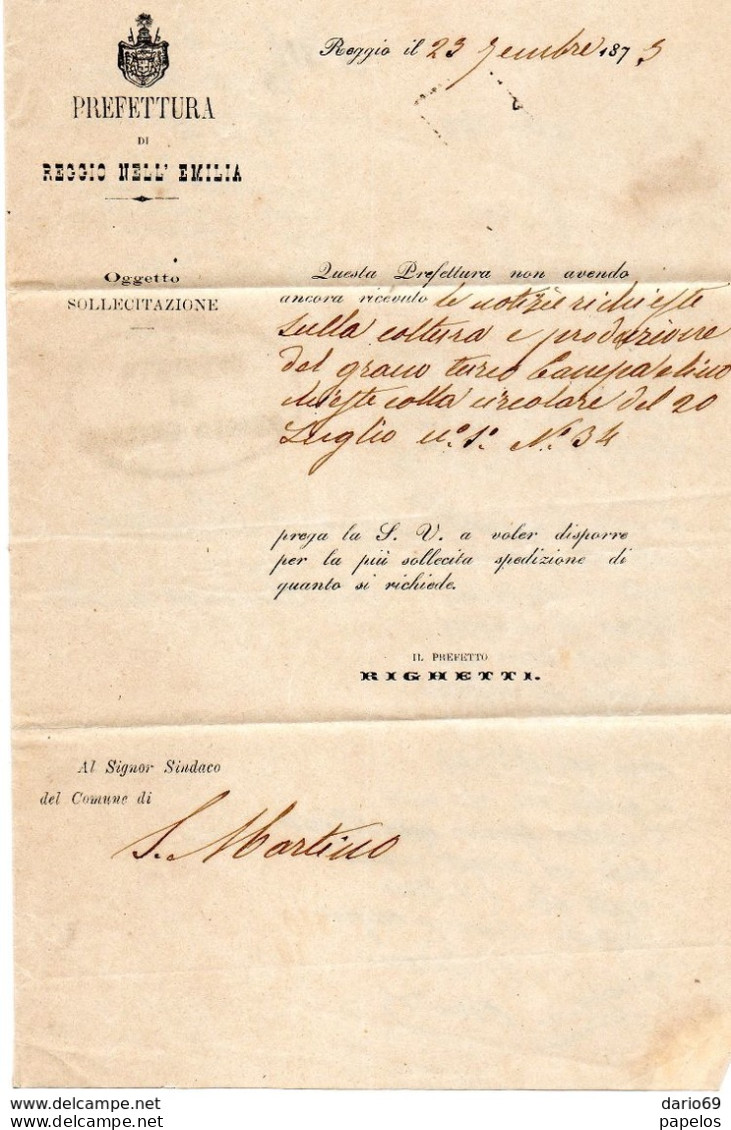 Reggio il 23 7embre 1873
PREFETTURA
DI
REGGIO NELL' EMILIA
Oggetto
SOLLECITAZIONE
Questa Prefettura non avendo
ancora ricevuto le notizie richieste
sulla coltura e produzione
del grano turco
chieste colla circolare del 20
Luglio N.° 34
prega la S. V. a voler disporre
per la più sollecita spedizione di
quanto si richiede.
IL PREFETTO
RIGHETTI.
Al Signor Sindaco
del Comune di
S. Martino
delcampe.net
delcampe.net
dario69
papelos